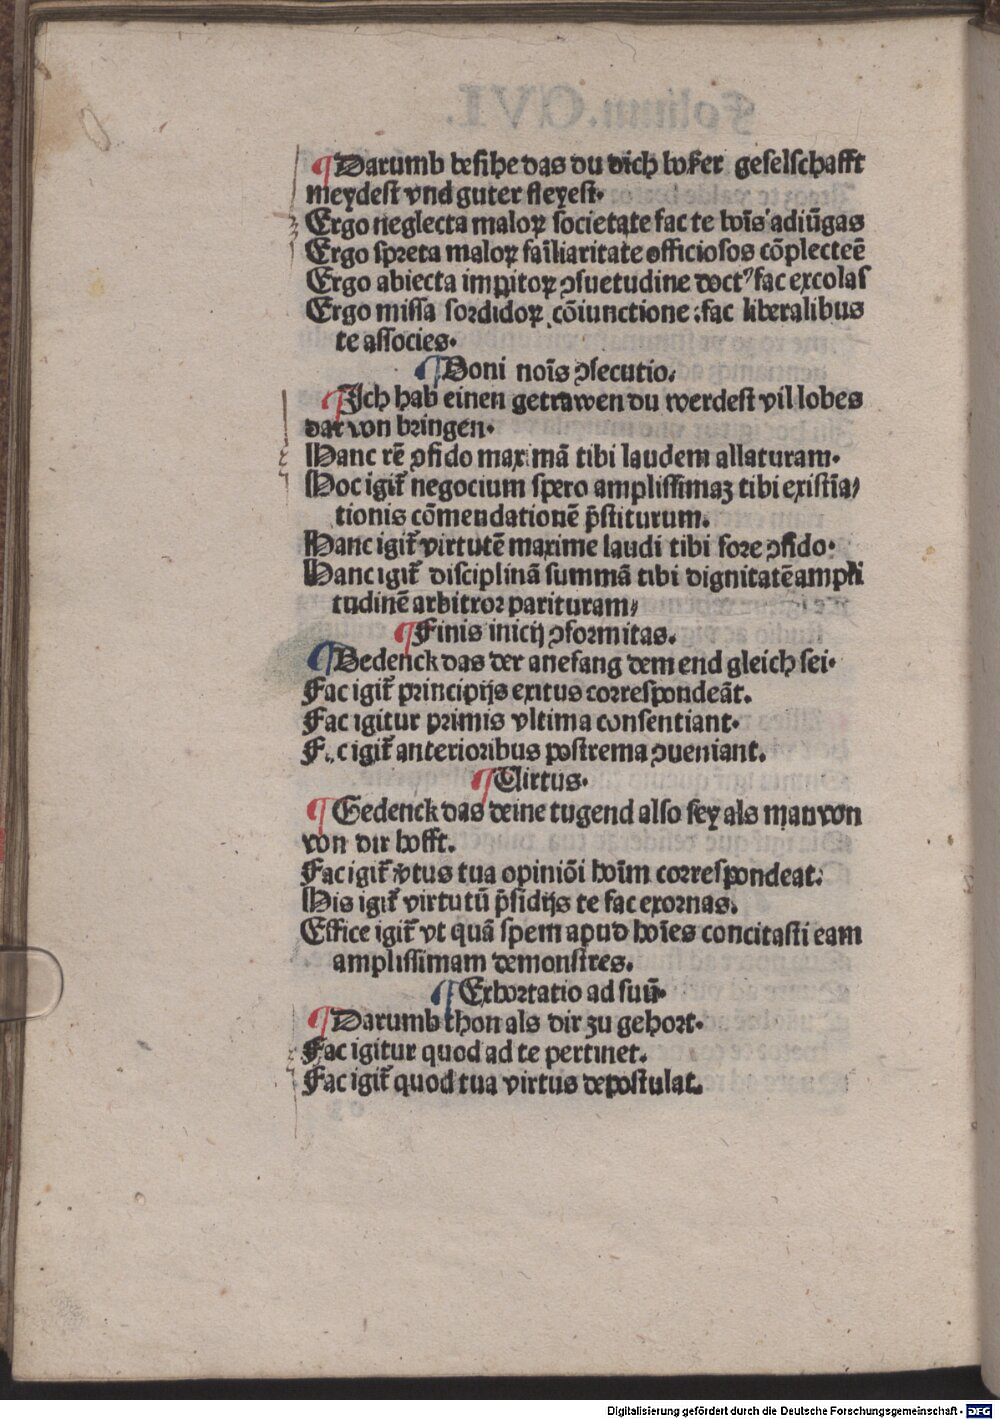 ¶Darumb besihe das du dich boser geselschafft
meydest vnd guter fleyest.
Ergo neglecta maloꝝ societate fac te boīs adiūgas
Ergo spreta maloꝝ familiaritate officiosos cōplecteē
Ergo abiecta imꝑitoꝝ ꝯsuetudine doctꝰ fac excolas
Ergo missa sordidoꝝ cōiunctione fac liberalibus
te associes.
¶Boni noīs ꝯsecutio.
¶Ich hab einen getrawen du werdest vil lobes
dar von bringen.
Hanc rē ꝯfido maximā tibi laudem allaturam.
Hoc igit̃ negocium spero amplissimaʒ tibi existīa/
tionis cōmendationē p̄stiturum.
Hanc igit̃ virtutē maxime laudi tibi fore ꝯfido.
Hanc igit̃ disciplinā summā tibi dignitatē ampli
tudinē arbitror parituram/
¶Finis inicij ꝯformitas.
¶Bedenck das der anefang dem end gleich sei.
Fac igit̃ principijs exitus correspondeāt.
Fac igitur primis vltima consentiant.
Fac igit̃ anterioribus postrema ꝯueniant.
¶Uirtus.
¶Gedenck das deine tugend also sey als man von
von dir hofft.
Fac igit̃ v̄tus tua opiniōi hoīm correspondeat.
His igit̃ virtutū p̄sidijs te fac exornas.
Effice igit̃ vt quā spem apud hoīes concitasti eam
amplissimam demonstres.
¶Exhortatio ad suū.
¶Darumb thon als dir zu gehort.
Fac igitur quod ad te pertinet.
Fac igit̃ quod tua virtus depostulat.
Digitalisierung gefördert durch die Deutsche Forschungsgemeinschaft - DFG